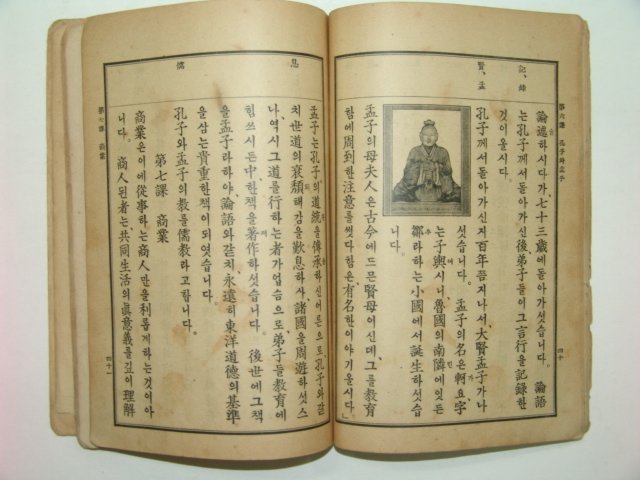 記、錄
賢、孟
第六課 孔子와孟子
四十
論述하시다가、七十三歲에돌아가섯습니다。 論語
는孔子께서돌아가신後、弟子들이그言行을記錄한
것이올시다。
孔子께서돌아가신지百年쯤지나서、大賢孟子가나
섯습니다。 孟子의名은軻요字
는子輿시니、魯國의南隣에잇든
鄒라하는小國에서誕生하섯습
니다。
孟子의母夫人은古今에드믄賢母이신데、그를敎育
함에周到한注意를썻다함은、有名한이야기올시다。
息
儒
孟子는孔子의道統을傳承하신어른으로、孔子와갈
치世道의衰頹해감을歎息하사、諸國을周遊하섯스
나、역시그道를行하는者가업슴으로、弟子들敎育에
힘쓰시든中、한책을著作하섯습니다。 後世에그책
을孟子라하야、論語와갈치、永遠히東洋道德의基準
을삼는貴重한책이되엿습니다。
孔子와孟子의敎를儒敎라고합니다。
第七課 商業
商業은이에從事하는商人만을利롭게하는것이아
니다。 商人된者는、共同生活의眞意義를깁이理解
第七課 商業
四十一